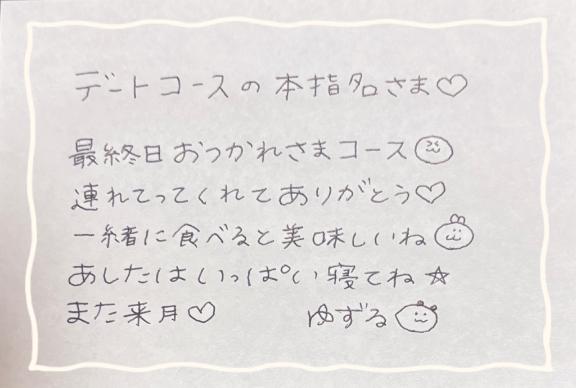 デートコースの本指名さま♡
最終日おつかれさまコース
連れてってくれてありがとう♡
一緒に食べると美味しいね
あしたはいっぱい寝てね☆
また来月♡
ゆずる